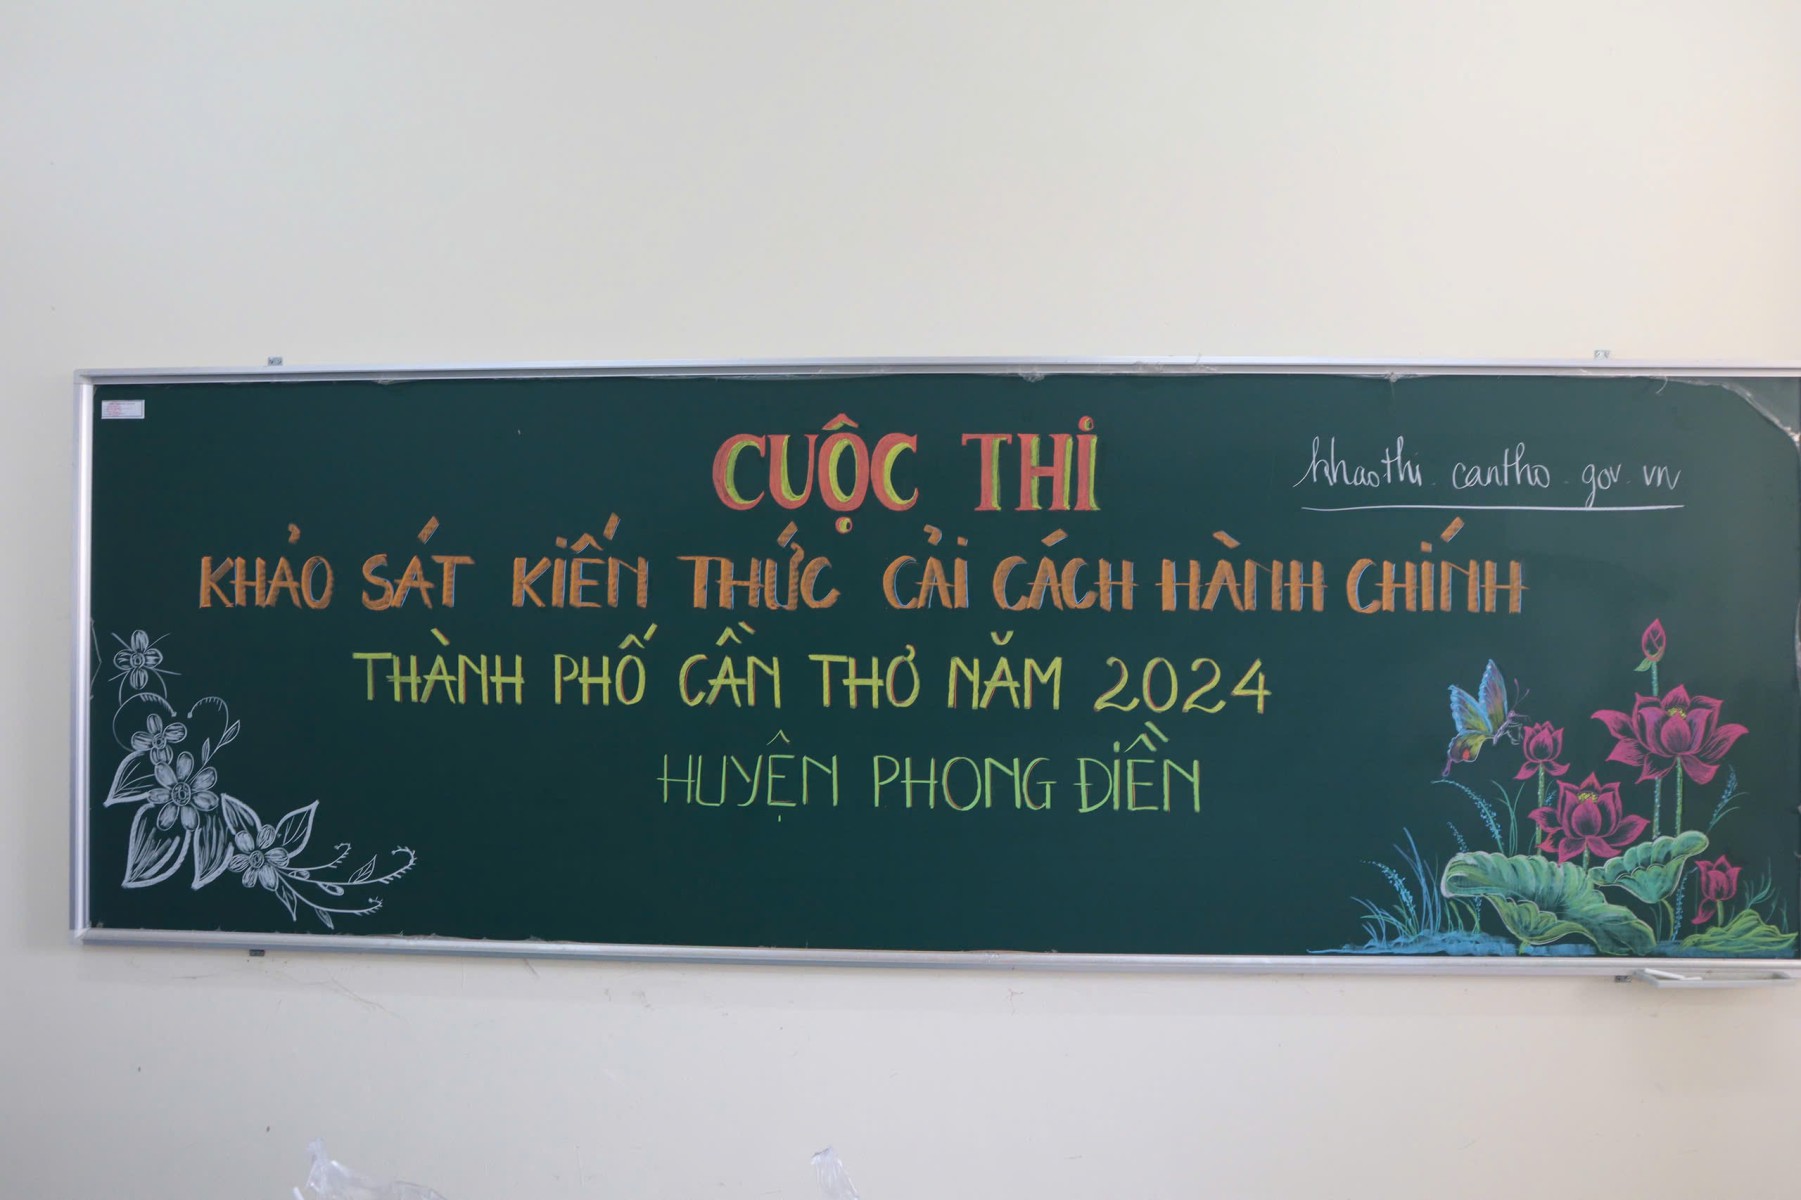 CUỘC THI
khaothi.cantho.gov.vn
KHẢO SÁT KIẾN THỨC CẢI CÁCH HÀNH CHÍNH
THÀNH PHỐ CẦN THƠ NĂM 2024
HUYỆN PHONG ĐIỀN